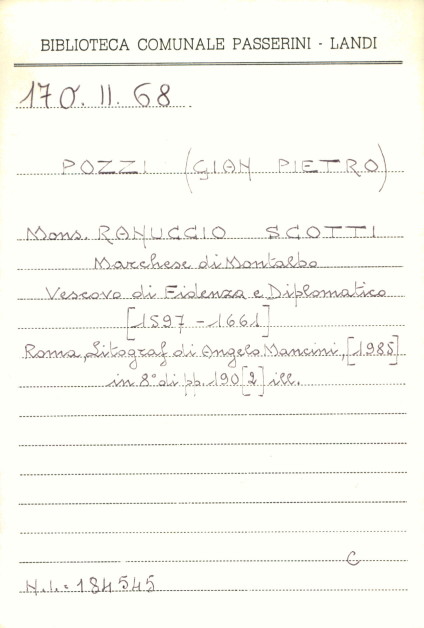 BIBLIOTECA COMUNALE PASSERINI - LANDI
170. II. 68.
POZZI (GIAN PIETRO)
Mons. RANUCCIO SCOTTI
Marchese di Montalbo
Vescovo di Fidenza e Diplomatico
[1597 - 1661]
Roma, Litograf di Angelo Mancini, [1985]
in 8° di pp. 190 [2] ill.
C
N.I.: 184545